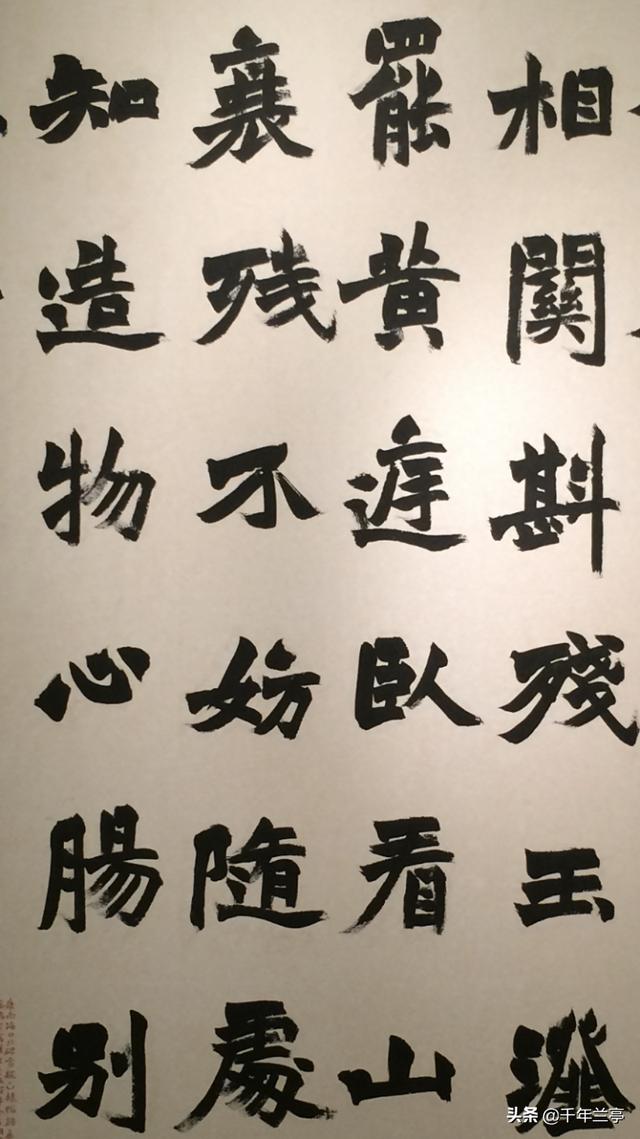 相關斟殘玉瀣
罷黃庭臥看山
衰残不妨隨處
知造物心腸別
头条 @千年兰亭